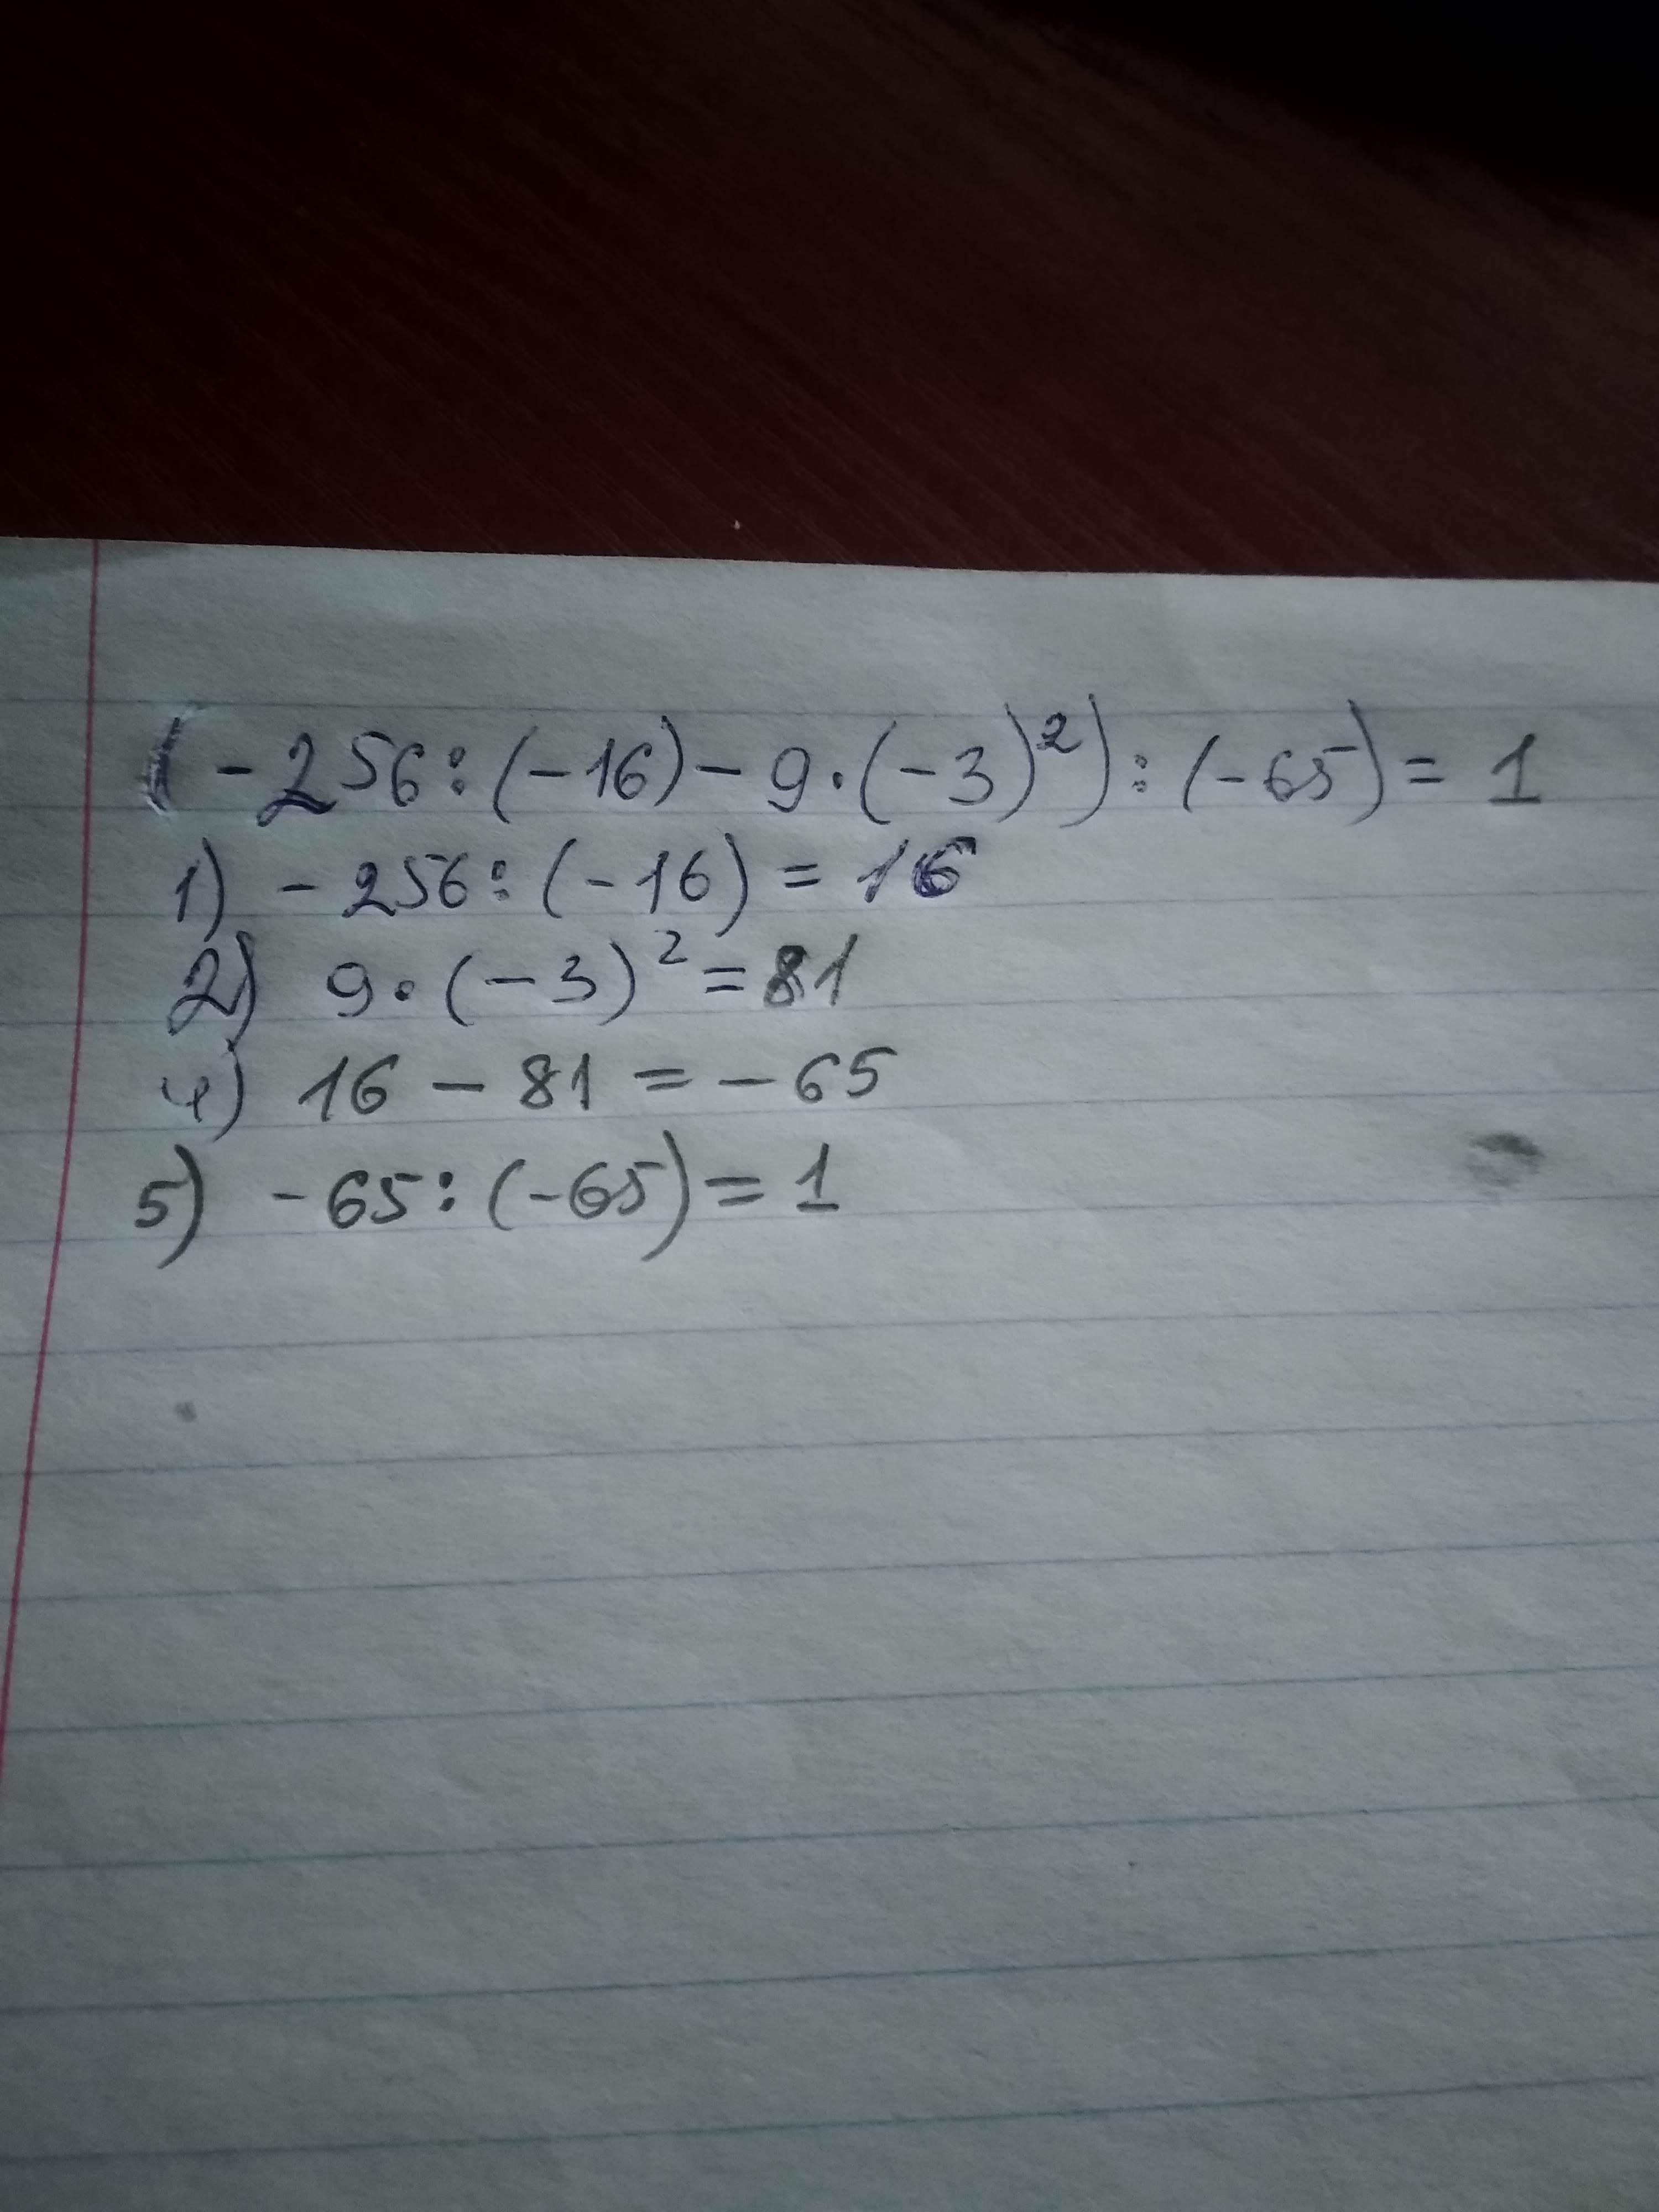 (-256:(-16)-9·(-3)²):(-65)=1
1) -256:(-16)=16
2) 9·(-3)²=81
4) 16-81=-65
5) -65:(-65)=1